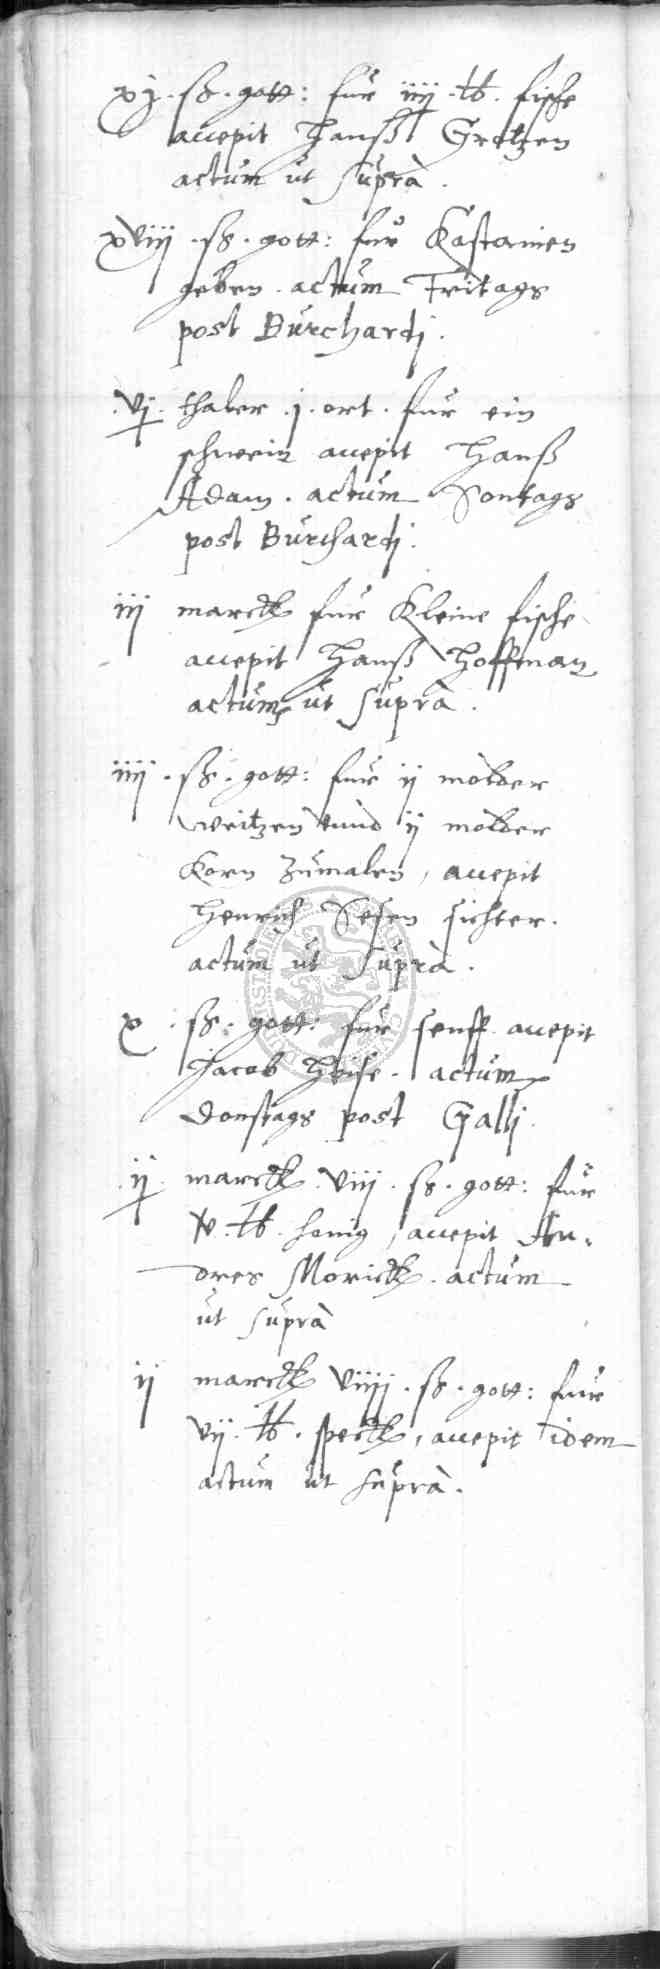 xj . ß . gott: fur iiij . lb . fische
accepit Hanß Gretzen
actum ut supra .
xviij . ß . gott: fur Kastanien
geben . actum Fritags
post Burchardj .
vj . thaler . j . ort . fur ein
schwein accepit Hanß
Adam . actum Sontags
post Burchardj .
iij marck fur Kleine fische
accepit Hanß Hoffman
actum ut supra .
iiij . ß . gott: fur ij molder
weitzen unnd ij molder
Korn Zumalen , accepit
Henrich Sesen sichter .
actum ut supra .
x . ß . gott: fur senff accepit
Jacob Heise . actum
Donstags post Gallj .
ij marck . viij . ß . gott: fur
v . lb . honig , accepit An-
dres Morick . actum
ut supra
ij marck viiij . ß . gott: fur
vij . lb . speck , accepit idem
actum ut supra .